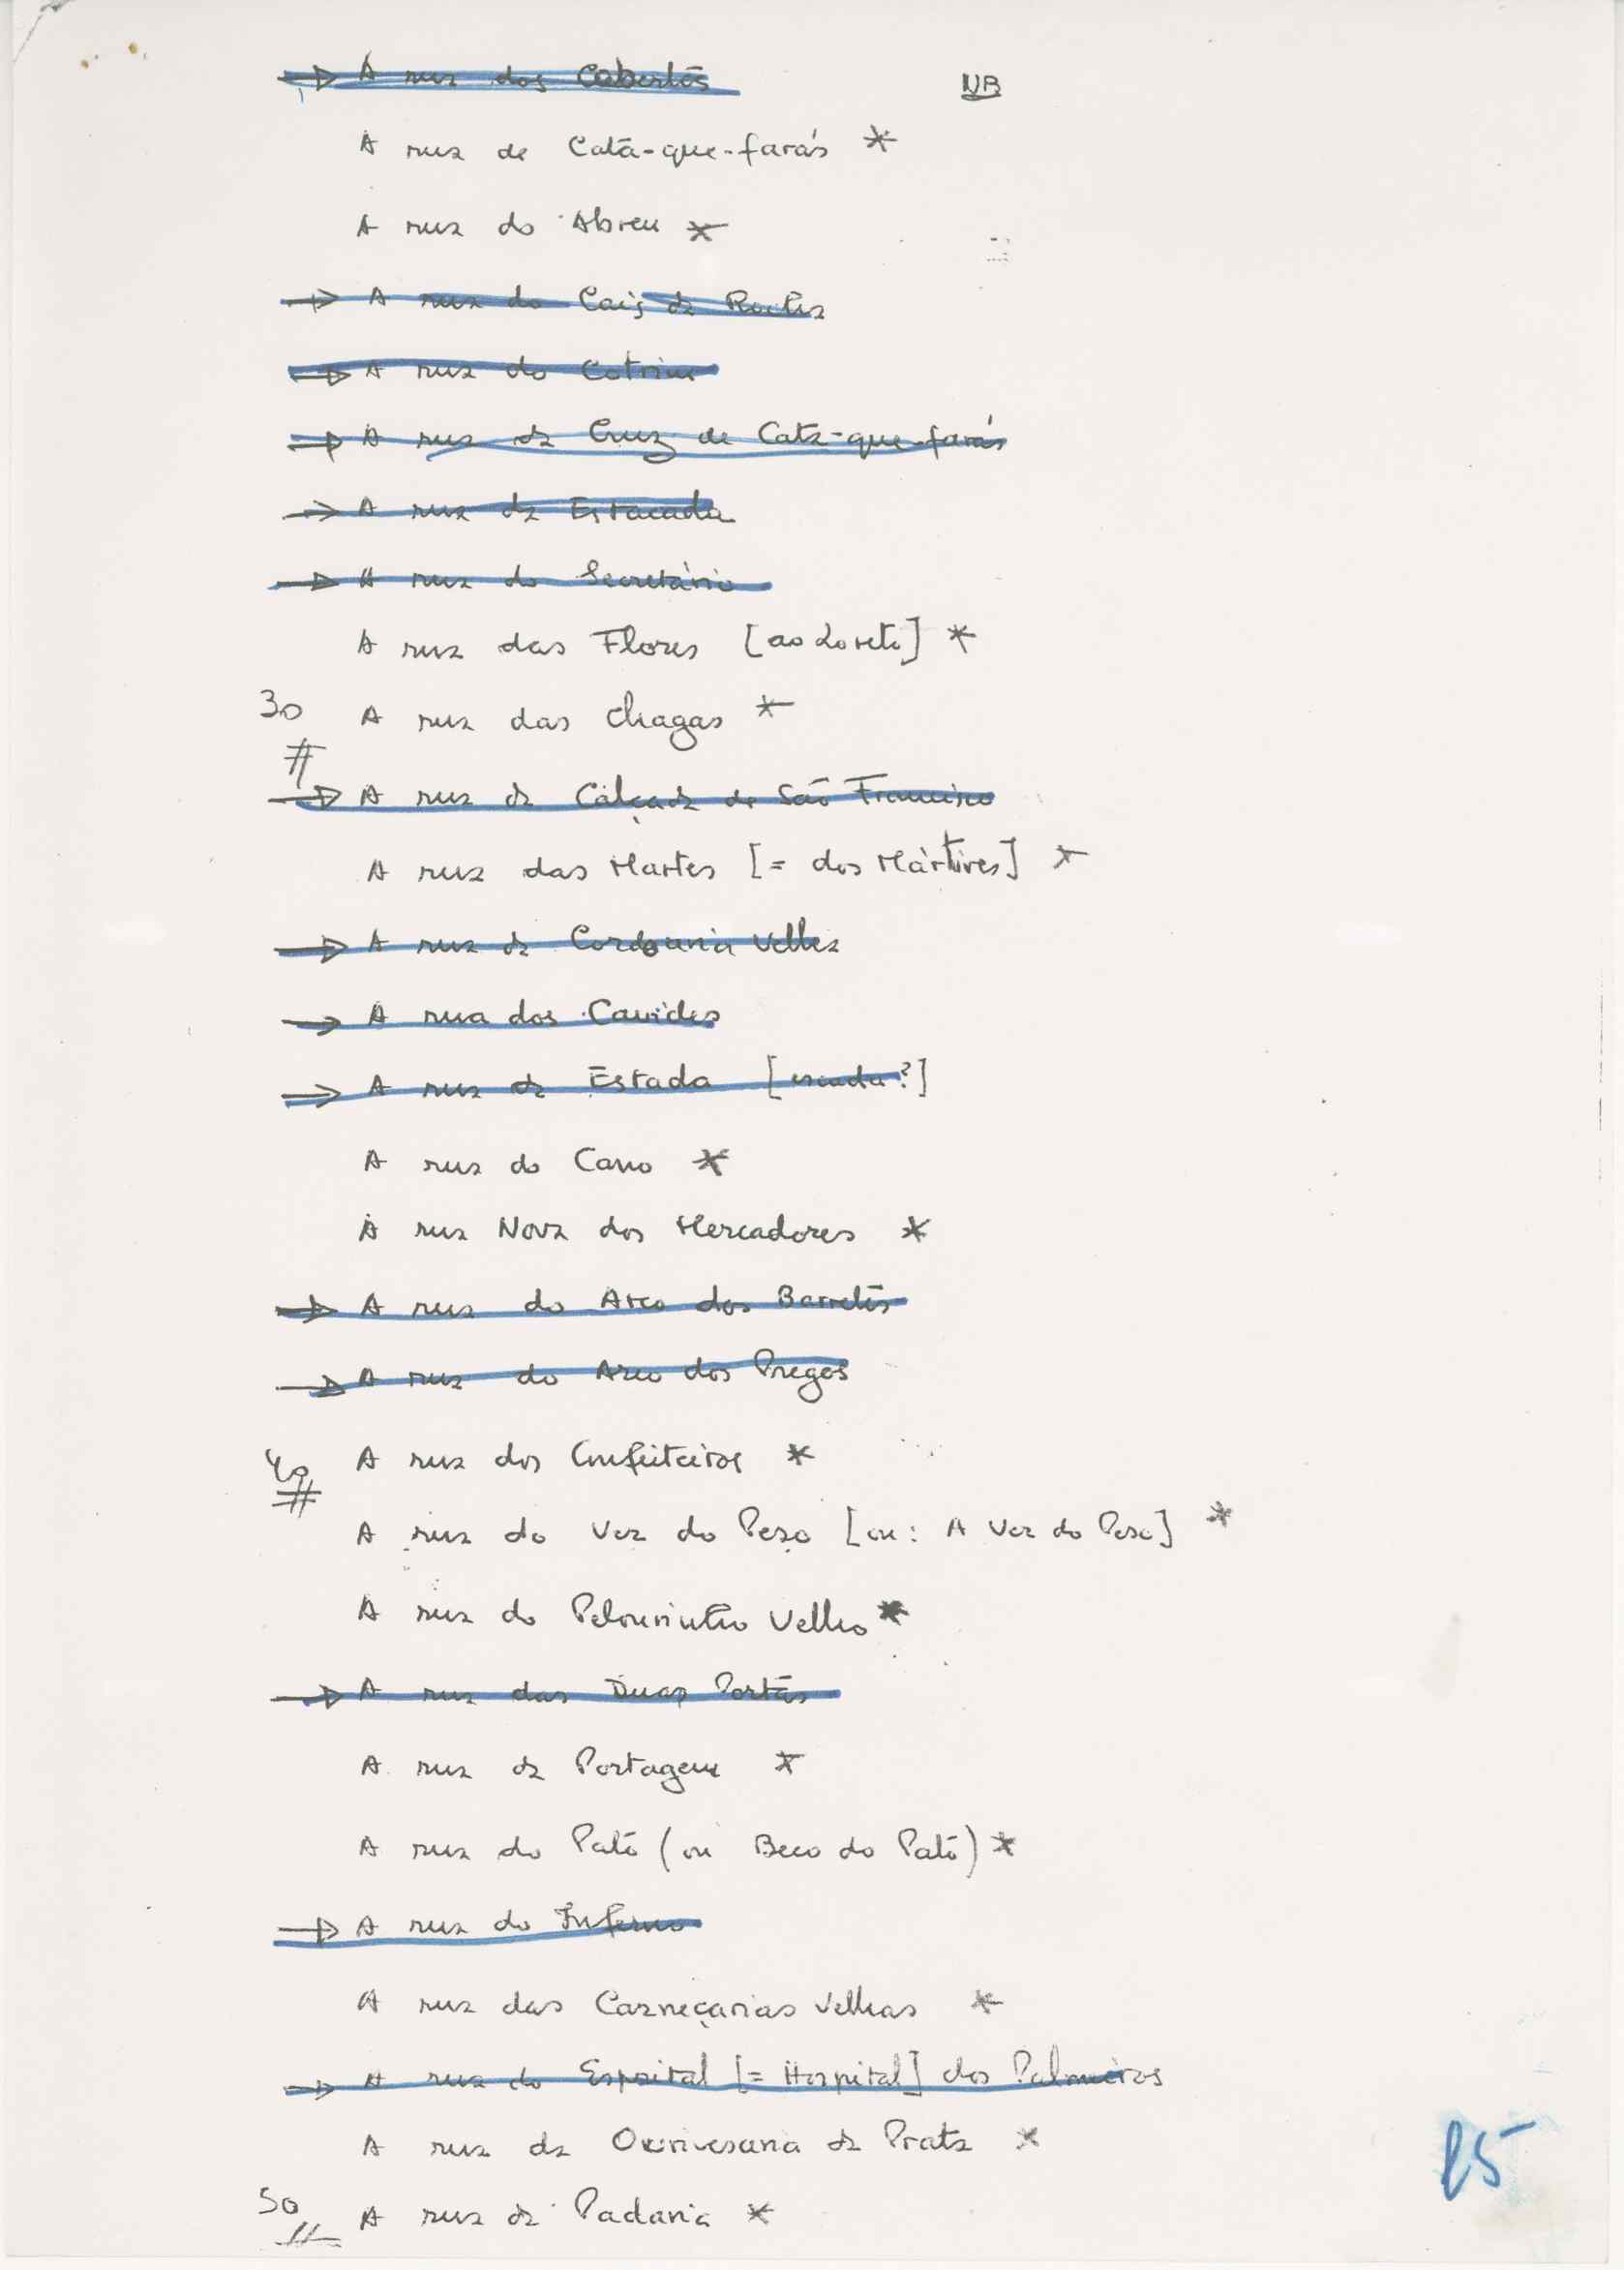 → A rua dos Cabertos NB
A rua de Cata-que-farás *
A rua do Abreu *
→ A rua do Cais da Rocha
→ A rua do Cotrim
→ A rua da Cruz de Cata-que-farás
→ A rua da Estacada
→ A rua do Secretário
A rua das Flores [ao Loreto] *
30 A rua das Chagas *
#
→ A rua da Calçada de São Francisco
A rua das Martes [= dos Mártires] *
→ A rua da Cordoaria Velha
→ A rua dos Cavides
→ A rua da Estada [escada?]
A rua do Cano *
A rua Nova dos Mercadores *
→ A rua do Arco dos Barretes
→ A rua do Arco dos Pregos
40 A rua dos Confeiteiros *
#
A rua do Ver do Peso [ou: A Ver do Peso] *
A rua do Pelourinho Velho *
→ A rua das Duas Portas
A rua da Portagem *
A rua do Pato (ou Beco do Pato) *
→ A rua do Inferno
A rua das Carneçarias Velhas *
→ A rua do Esprital [= Hospital] dos Palmeiros
A rua da Ourivesaria da Prata *
50 A rua da Padaria *
25